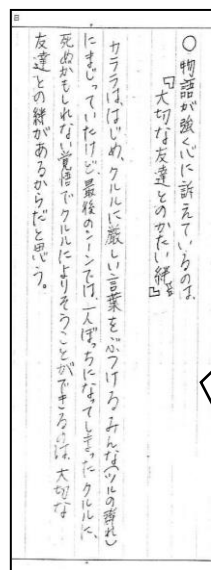 日
○物語が強く心に訴えているのは、
『大切な友達とのかたい絆』
カララは、はじめ、クルルに厳しい言葉をぶつけるみんな(ツルの群れ)
にまじっていたけど、最後のシーンでは、一人ぼっちになってしまったクルルに、
死ぬかもしれない覚悟でクルルによりそうことができるのは、大切な
友達との絆があるからだと思う。